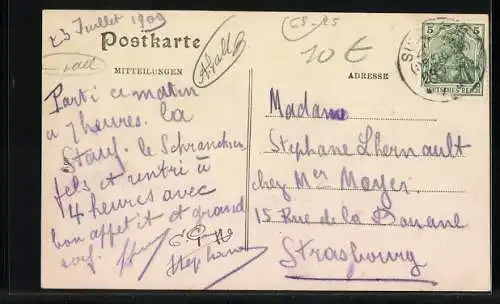 23 Juillet 1909
Postkarte
MITTEILUNGEN
ADRESSE
68-25
10 €
5
DEUTSCHES REICH
Parti ce matin
à 7 heures. la
le
fels et rentré à
4 heures avec
bon appetit et grand
soif.
Stephane
Madame
Stephane Lhernault
chez Mer Moyer
15 Rue de la Douane
Strasbourg